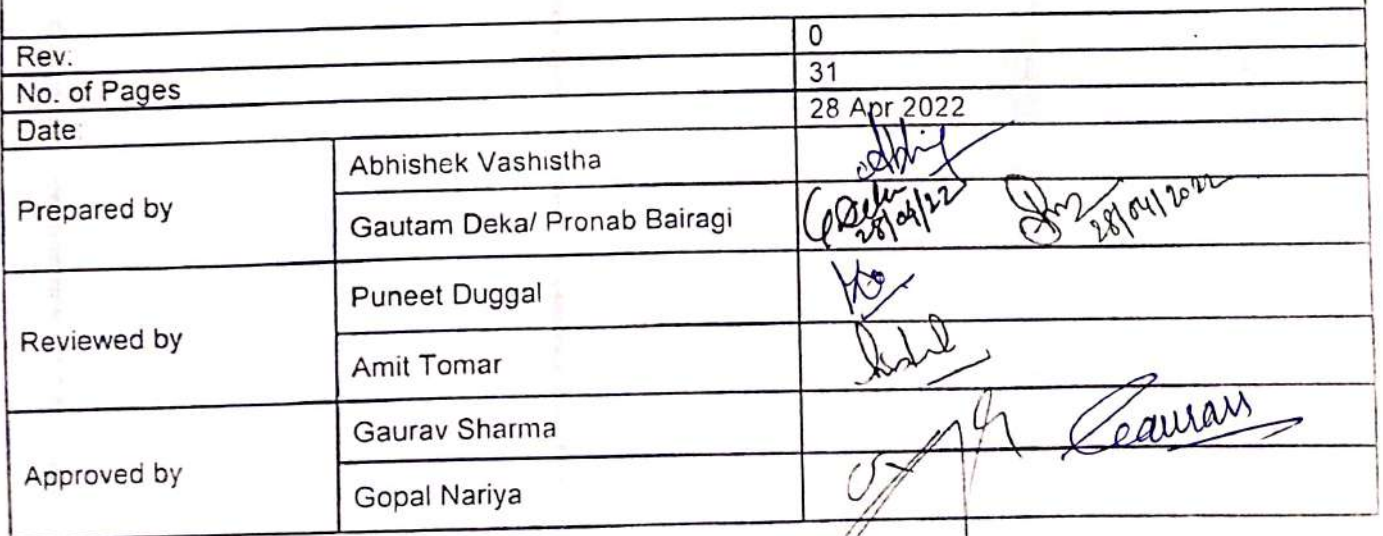 Rev: 0
No. of Pages 31
Date: 28 Apr 2022
Prepared by
Abhishek Vashistha
Gautam Deka/ Pronab Bairagi
GDeka
28/04/22
28/04/2022
Reviewed by
Puneet Duggal
Amit Tomar
Approved by
Gaurav Sharma
Gaurav
Gopal Nariya